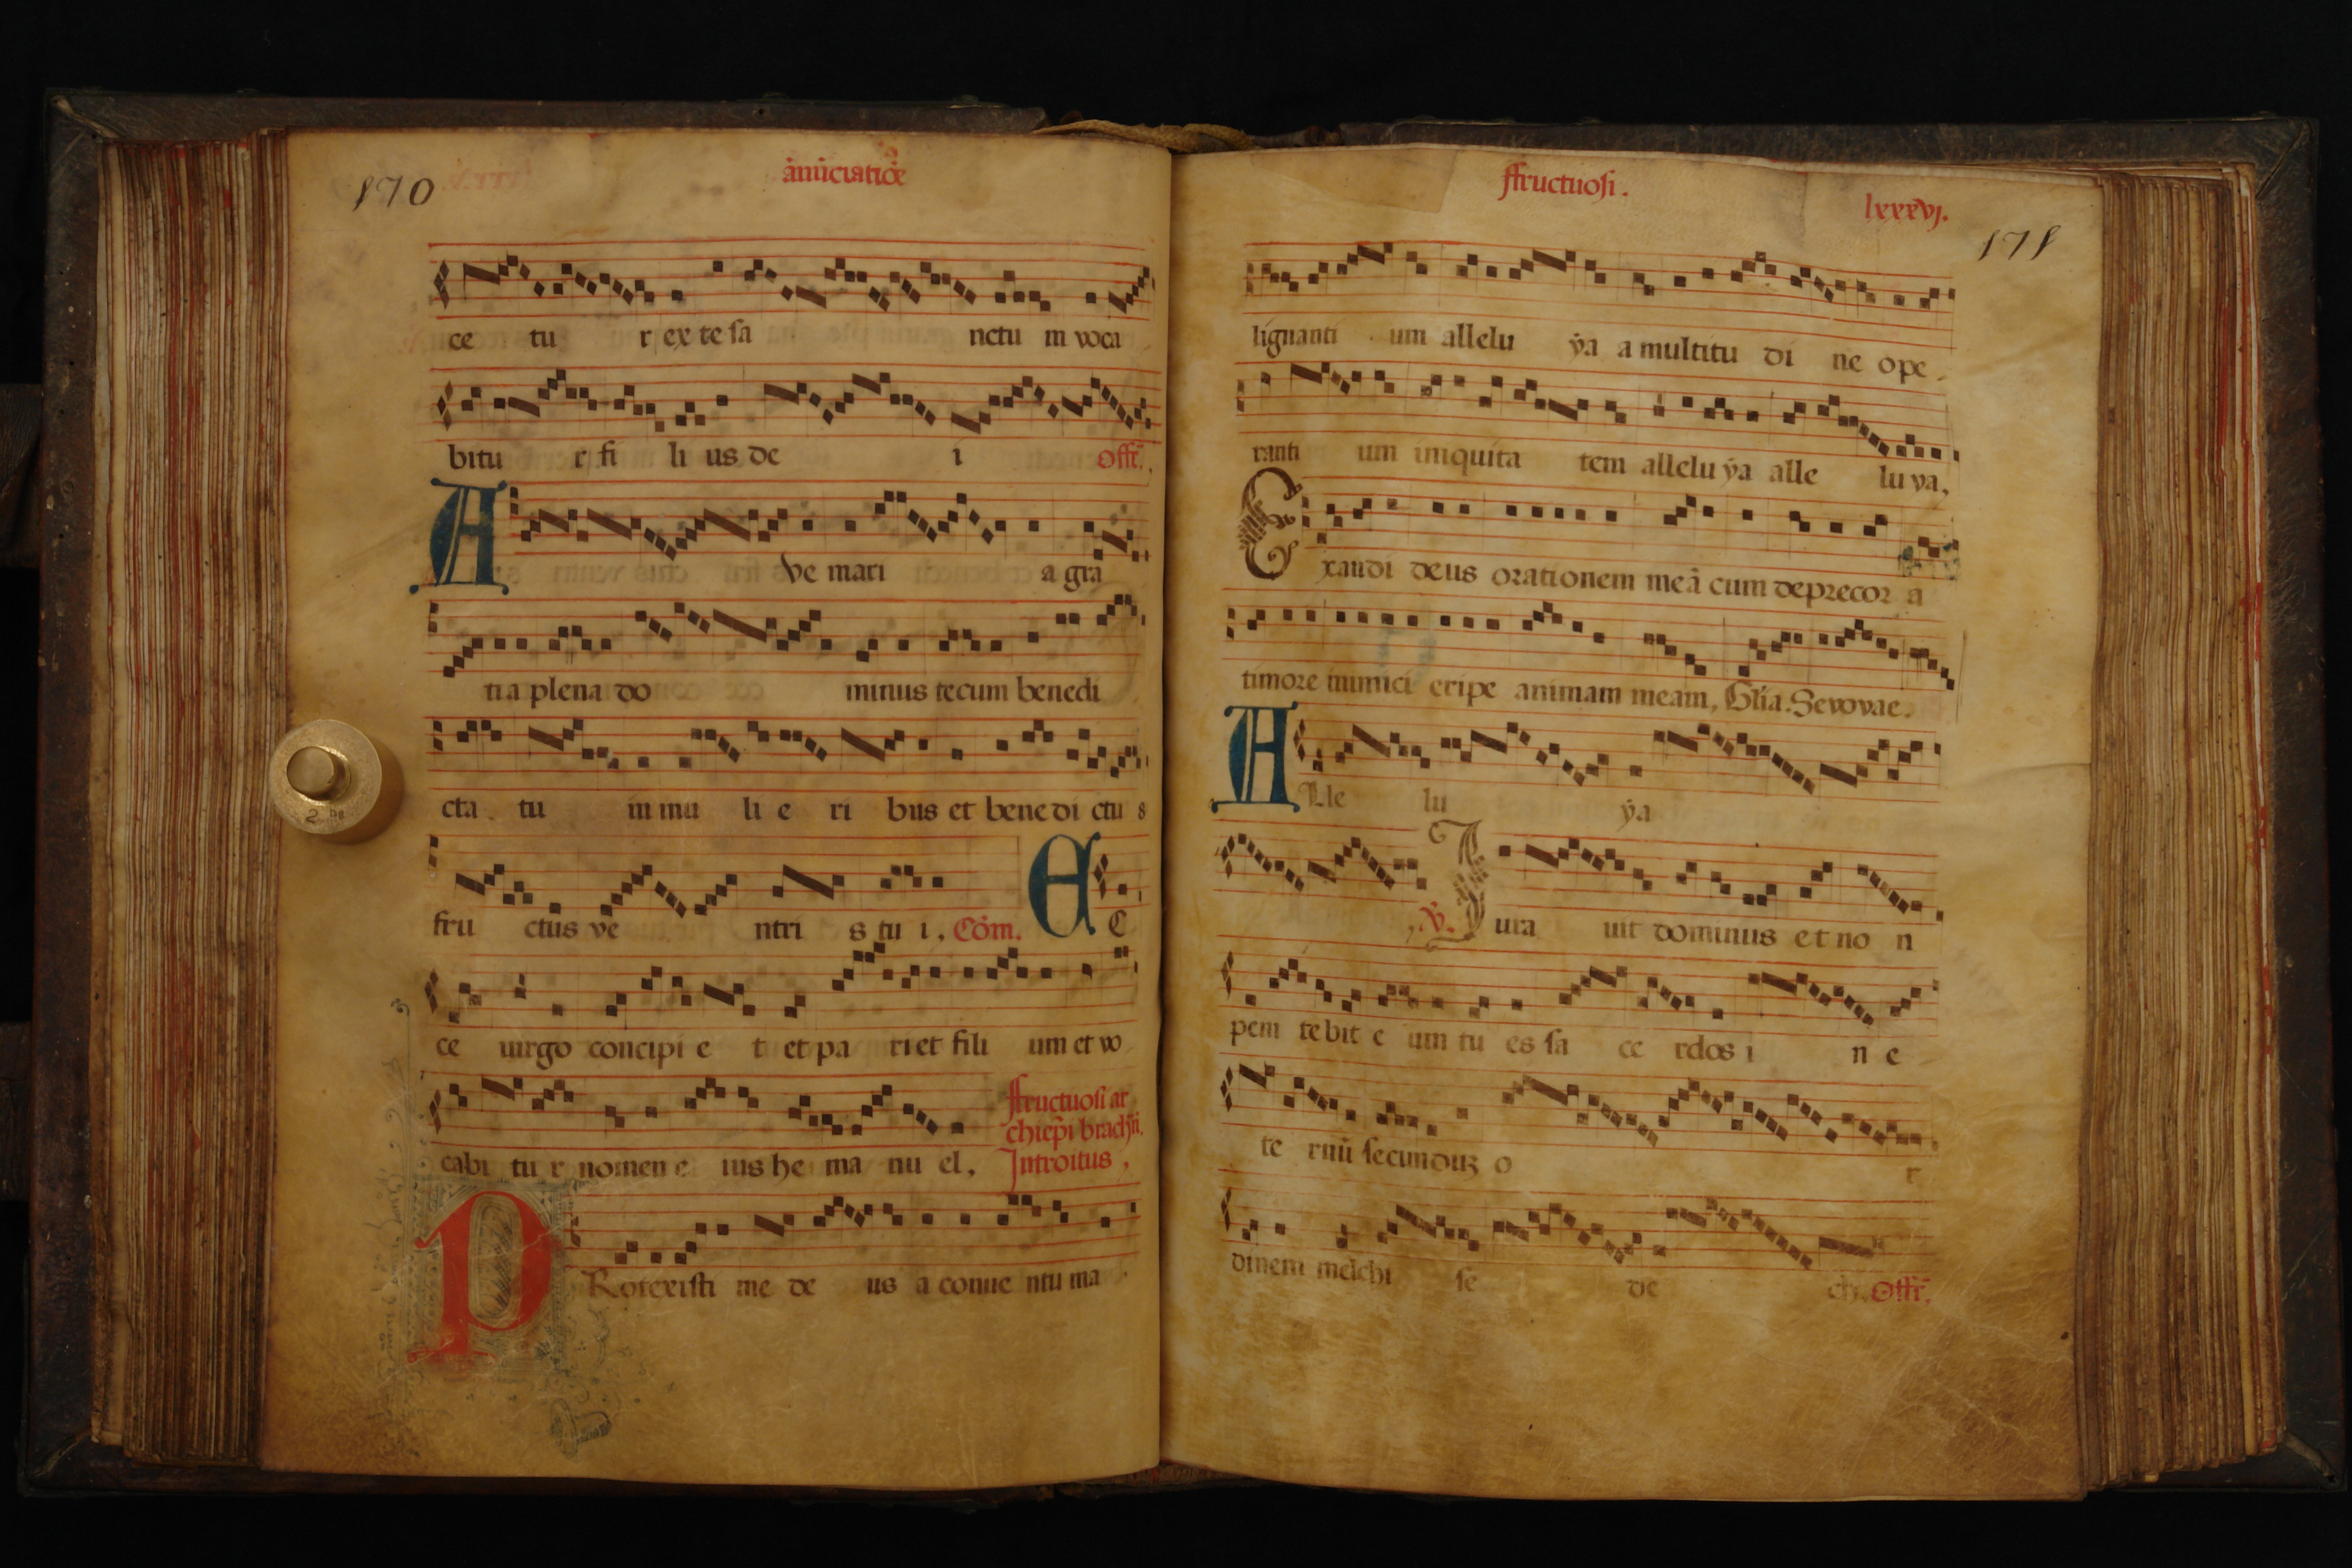 170
añũciatiõe
ce tu r ex te sa nctu m voca
bitu r fi li us de i Offr̃.
A ve mari a gra
tia plena do minus tecum benedi
cta tu in mu li e ri bus et bene di ctu s
fru ctus ve ntri s tu i, Cõm. E C
ce uirgo concipi e t et pa ri et fili um et vo
cabi tu r nomen e ius he ma nu el,
ffructuosi ar
chiep̃i brachñ.
Introitus,
P Rotexisti me de us a conue ntu ma
2
ffructuosi.
lxxxvj.
171
lignanti um allelu ẏa a multitu di ne ope
ranti um iniquita tem allelu ẏa alle lu ya,
E xaudi deus orationem meã cum deprecor a
timore inimici eripe animam meam, Gl̃ia. Seuouae.
A Lle lu ẏa
,℣. J ura uit dominus et no n
peni tebit e um tu es sa ce rdos i n e
te rnũ secunduʒ o r
dinem melchi se de ch. Offr̃,